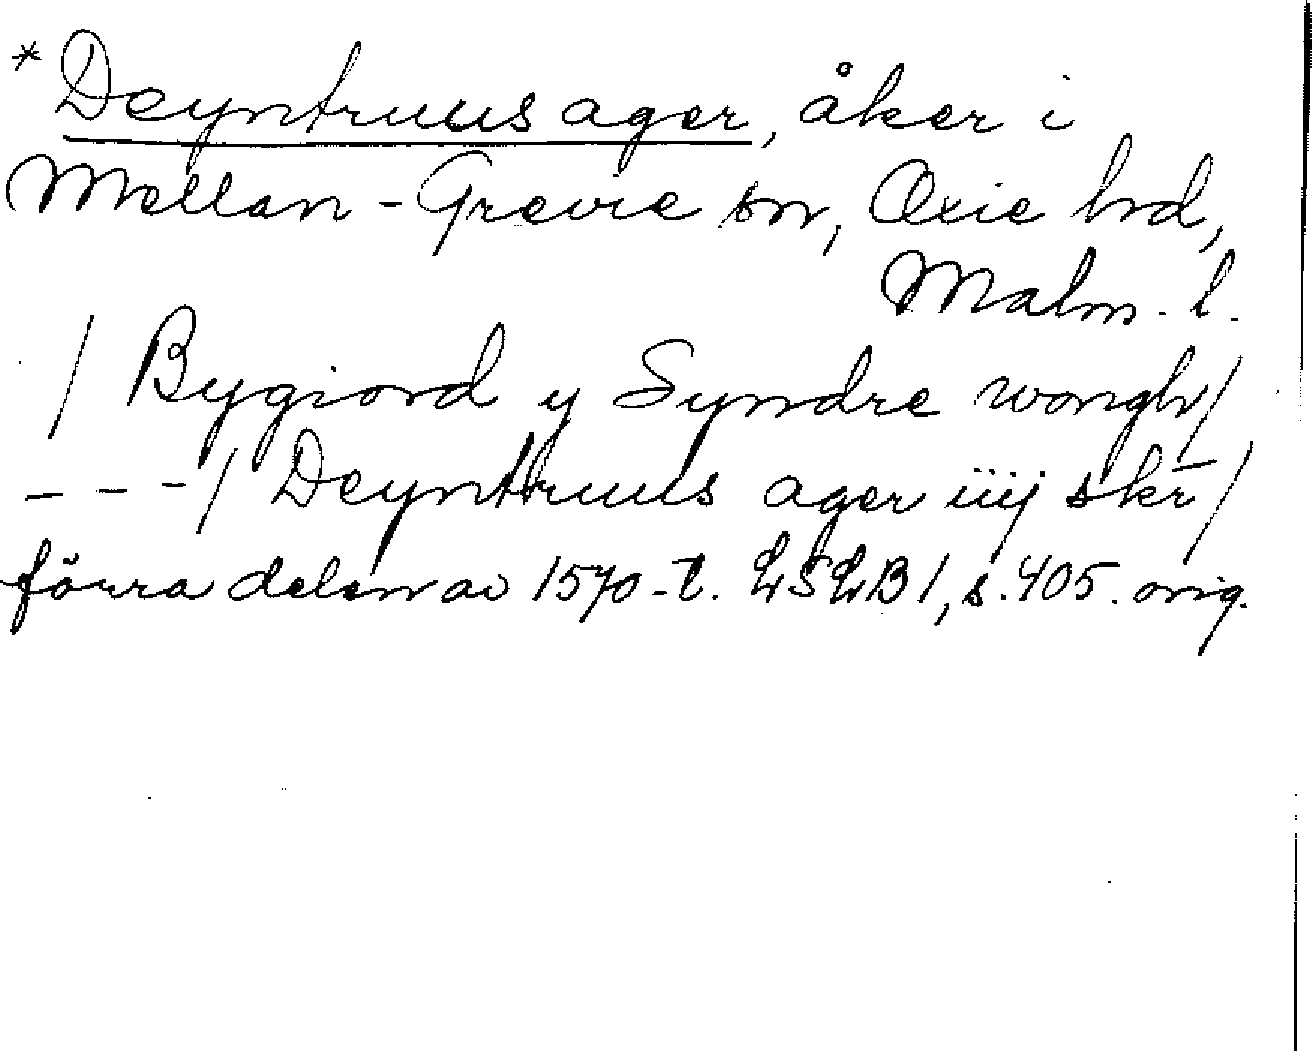 * Deyntruus ager, åker i
Mellan-Grevie sn, Oxie hd,
Malm. l.
/ Bygiord y Syndre wongh/
- - - / Deyntruus ager iiij skr̄ /
förra delen av 1570-t. LSLB1, s. 405. orig.